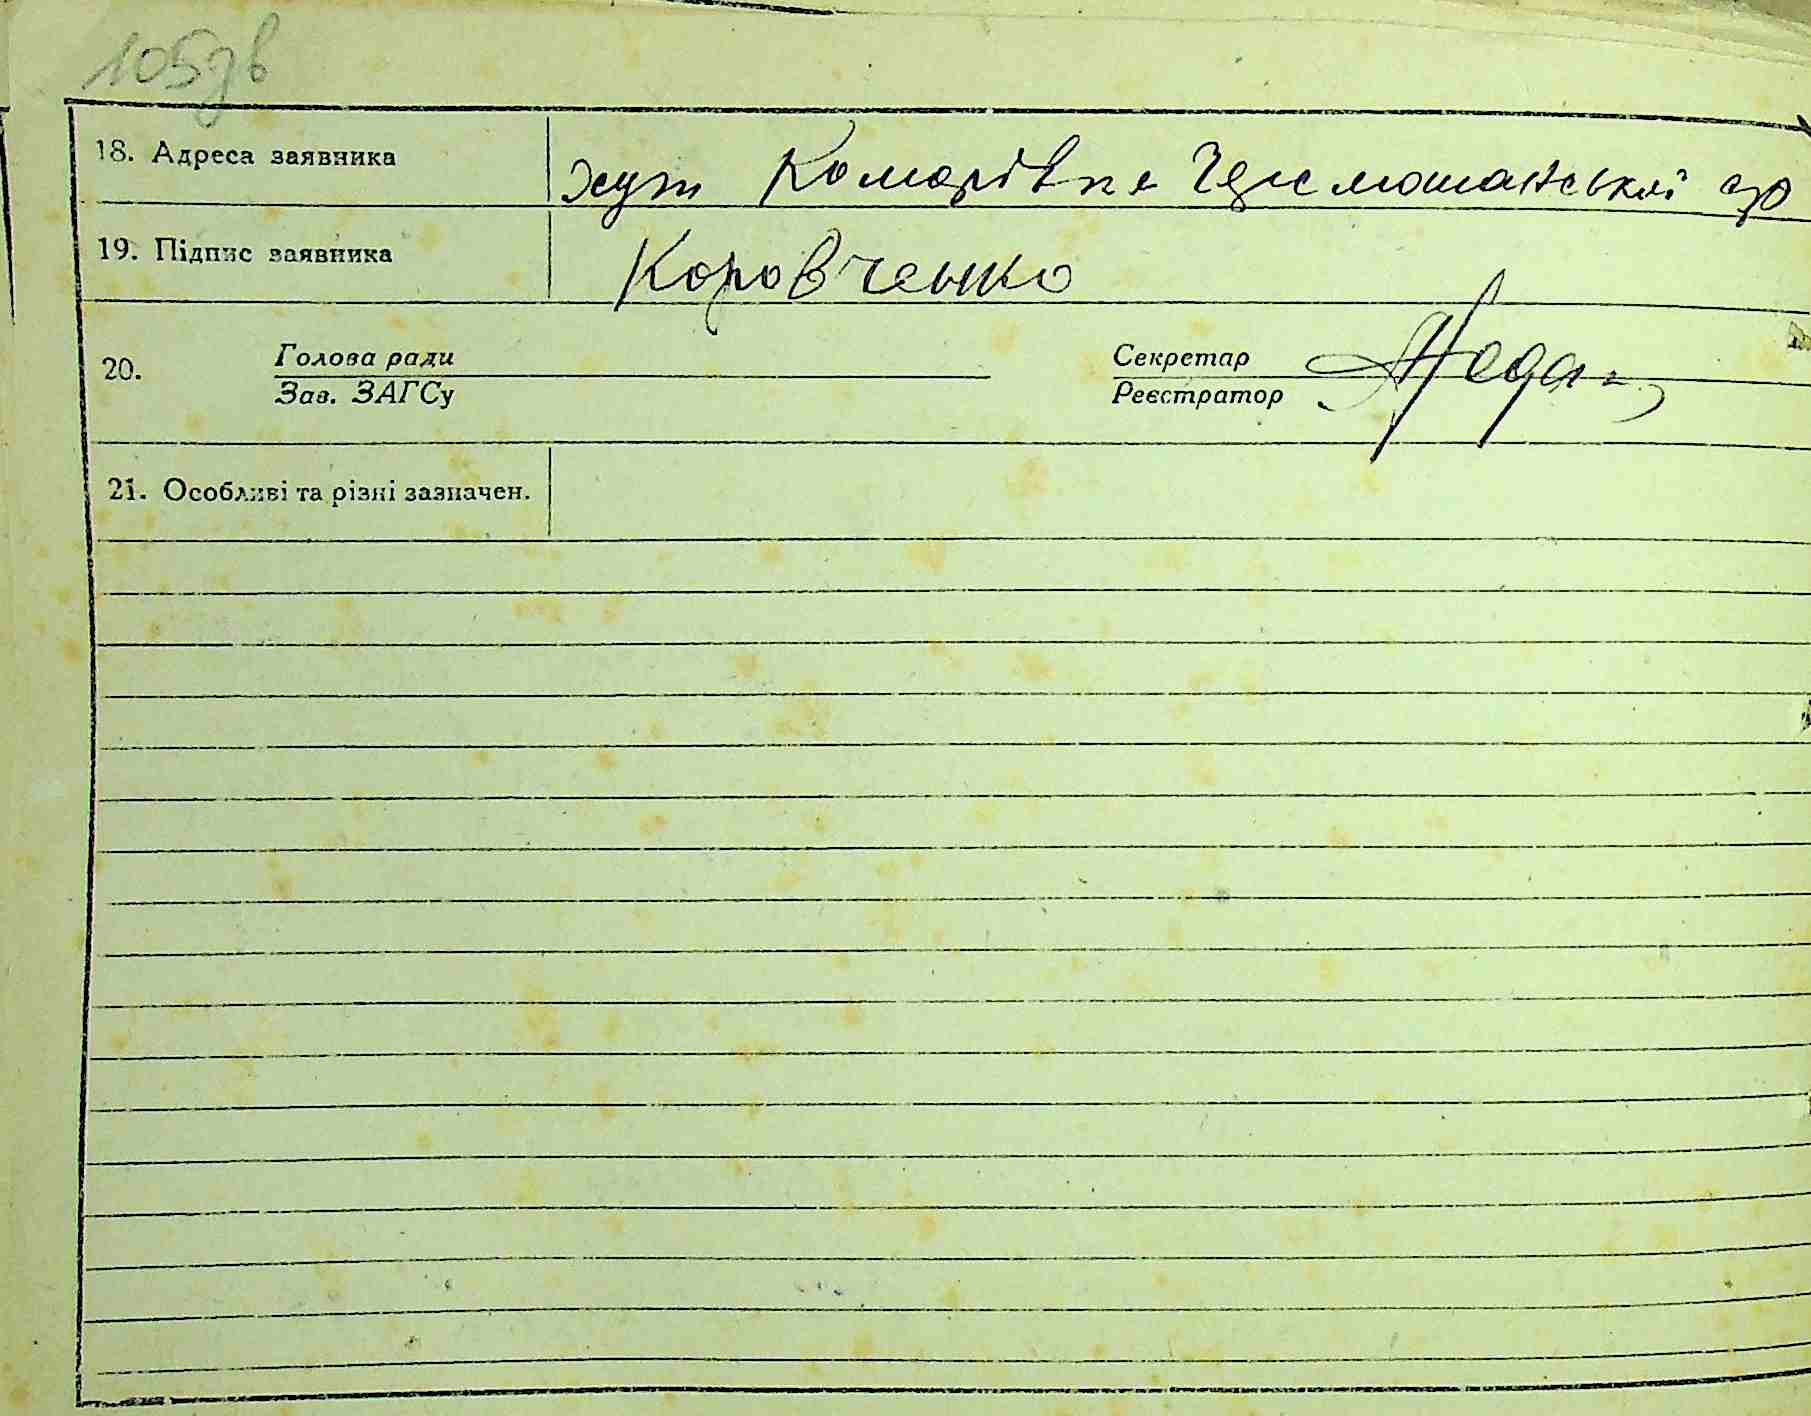 105зв
18. Адреса заявника хут Комарівка
19. Підпис заявника Коровченко
20. Голова ради Секретар
Зав. ЗАГСу Реєстратор
21. Особливі та різні зазначен.